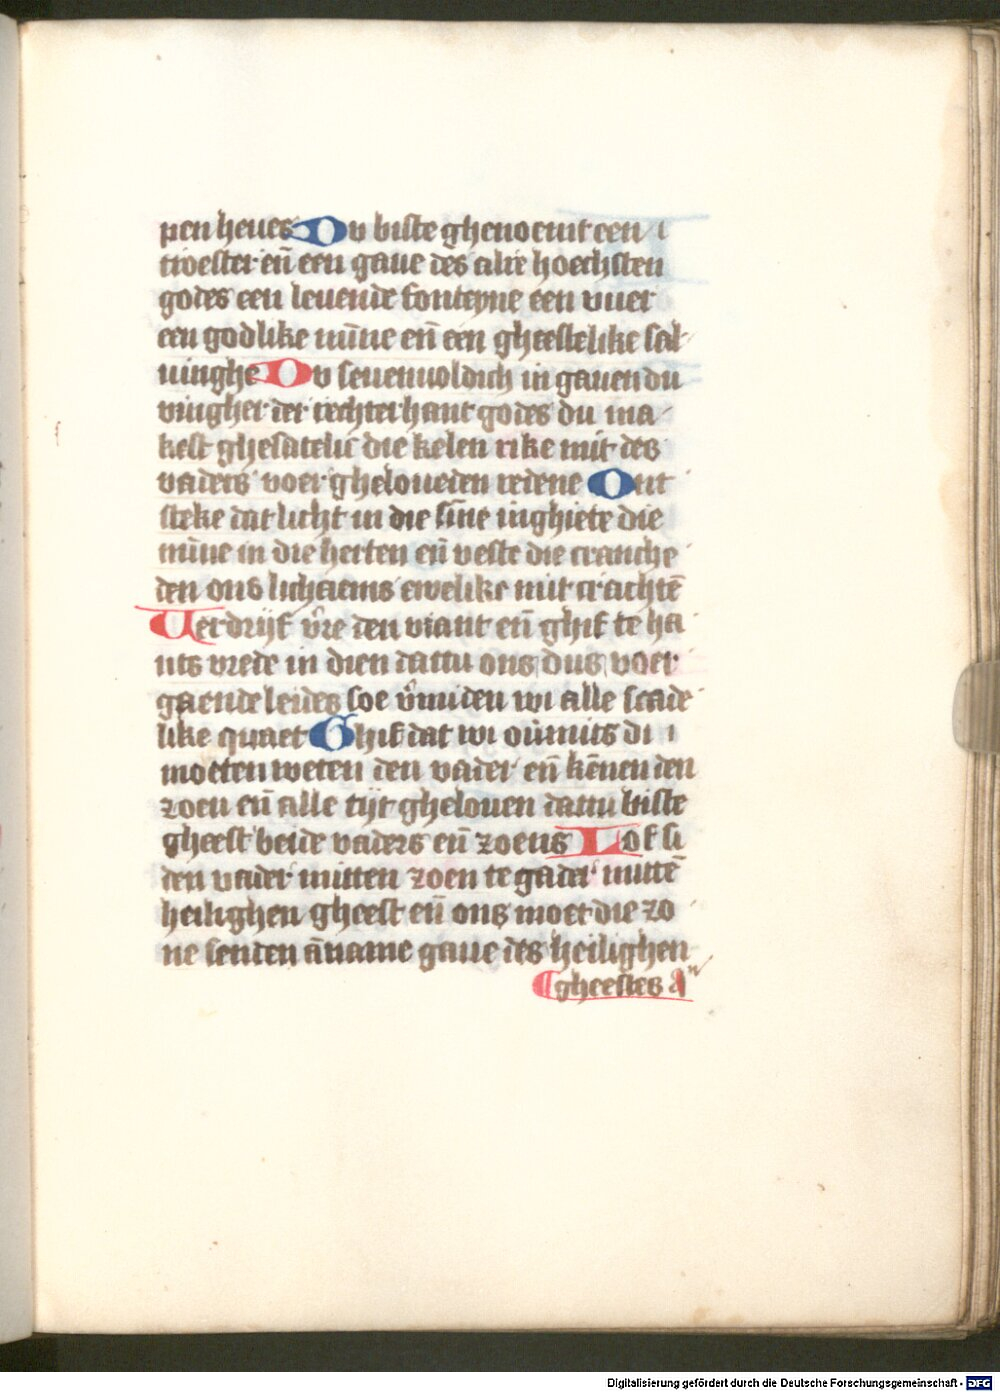 pen heues Du biste ghenoemt een
troester en̄ een gaue des alre hoechsten
godes een leuende fonteyne een vuer
een godlike mīne en̄ een gheestelike sal
uinghe Du seuenuoldich in gauen du
vingher der rechterhant godes du ma
kest ghesatelic die kelen rike mit des
vaders voer gheloueden redene Ont
steke dat licht in die sīne inghiete die
mīne in die herten en̄ veste die cranche
den ons lichaems ewelike mit crachtē
Uerdrijf v̄re den viant en̄ ghif te ha
nts vrede in dien dattu ons dus voer
gaende leides soe v̄miden wi alle scade
like quaet Ghif dat wi ouīmits di
moeten weten den vader en̄ kēnen den
zoen en̄ alle tijt ghelouen dattu biste
gheest beide vaders en̄ zoens Lof si
den vader mitten zoen te gader mittē
heilighen gheest en̄ ons moet die zo
ne senden āname gaue des heilighen
gheestes A
Digitalisierung gefördert durch die Deutsche Forschungsgemeinschaft - DFG